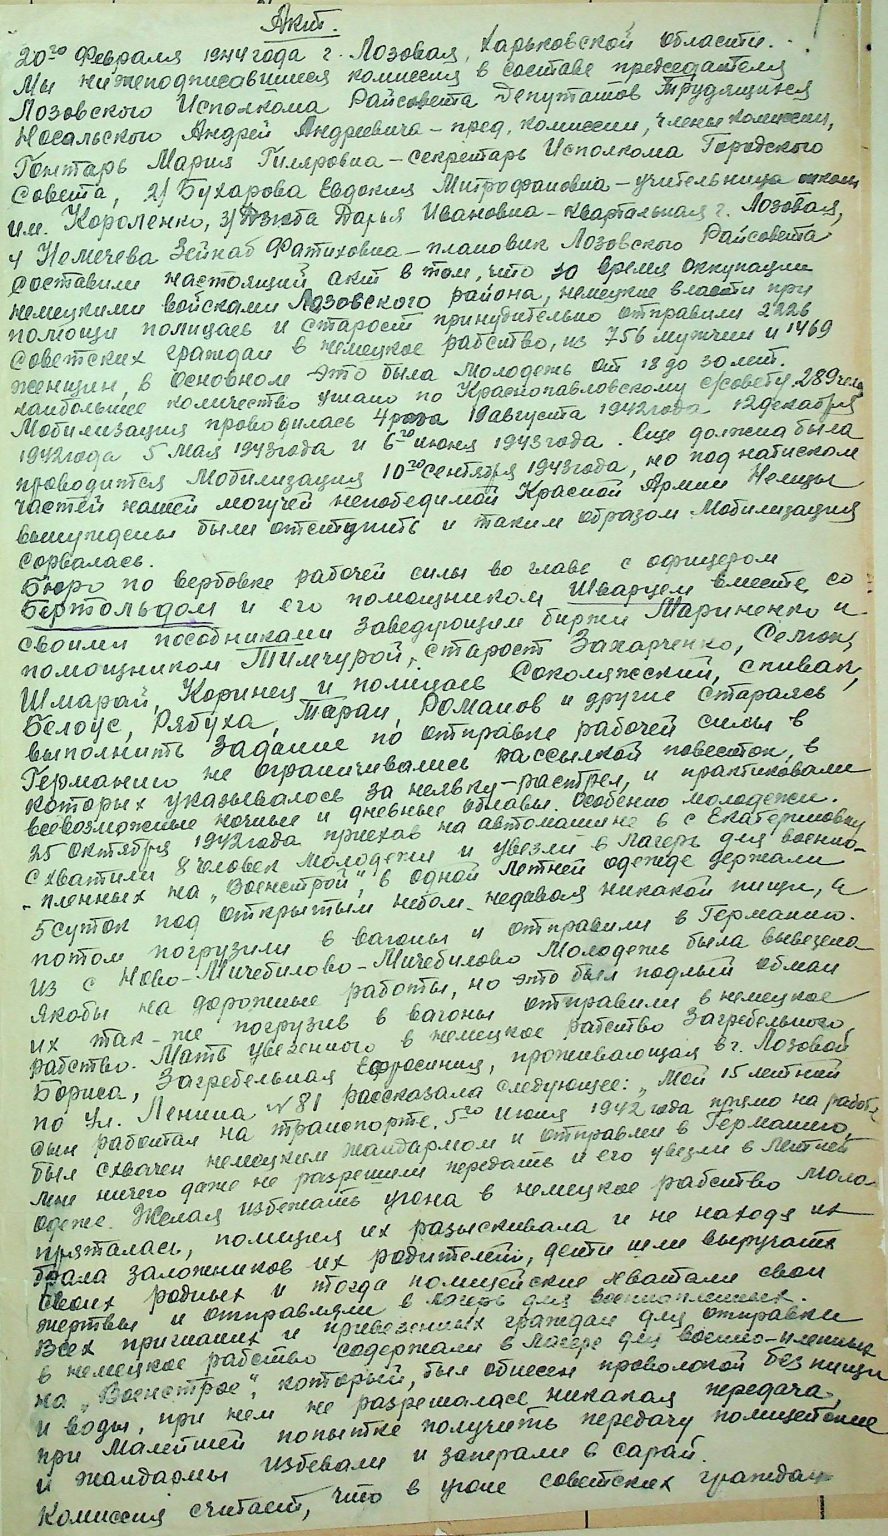 Акт.
20го Февраля 1944 года г. Лозовая, Харьковской области.
Мы нижеподписавшиеся комиссия в составе председателя
Лозовского Исполкома Райсовета Депутатов Трудящихся
Носальского Андрей Андреевича – пред. комиссии, члены комиссии,
Гонтарь Мария Гиляровна – секретарь Исполкома Городского
Совета, 2/ Бухарова Евдокия Митрофановна – учительница школы
им. Короленко, 3/ Дзюба Дарья Ивановна – квартальная г. Лозовая,
4 Немечева Зейнаб Фатиховна – плановик Лозовского Райсовета
составили настоящий акт в том, что во время оккупации
немецкими войсками Лозовского района, немецкие власти при
помощи полицаев и старост принудительно отправили 2226
советских граждан в немецкое рабство, из 756 мужчин и 1469
женщин, в основном это была молодежь от 18 до 30 лет.
наибольшее количество угнано по Краснопавловскому с/совету 289 чел
Мобилизация проводилась 4 раза 19 августа 1942 года 12 декабря
1942 года 5 мая 1943 года и 6го июня 1943 года. Еще должна была
проводится мобилизация 10го сентября 1943 года, но под натиском
частей нашей могучей непобедимой Красной Армии Немцы
вынуждены были отступить и таким образом мобилизация
сорвалась.
Бюро по вербовке рабочей силы во главе с офицером
Бертольдом и его помощником Шварцем вместе со
своими пособниками заведующим биржи Мариненко и
помощником Тимчурой, старост Захарченко, Селюк,
Шмарай, Коринец и полицаев Соколяжский, Спивак,
Белоус, Рябуха, Таран, Романов и другие стараясь
выполнить задание по отправке рабочей силы в
Германию не ограничивались рассылкой повесток, в
которых указывалось за неявку – растрел, и практиковали
всевозможные ночные и дневные облавы. Особенно молодежи.
25 октября 1942 года приехав на автомашине в с Екатериновку
схватили 8 человек молодежи и увезли в лагерь для военно-
-пленных на „Военстрой“, в одной летней одежде держали
5 суток под открытым небом, недавая никакой пищи, а
потом погрузили в вагоны и отправили в Германию.
из с Ново-Мичебилово – Мичебилово молодежь была вывезена
якобы на дорожные работы, но это был подлый обман
их так-же погрузив в вагоны отправили в немецкое
рабство. Мать увезенного в немецкое рабство Загребельного
Бориса, Загребельная Ефросиния, проживающая в г. Лозовой
по ул. Ленина № 81 рассказала следующее: „Мой 15 летний
сын работал на транспорте. 5го июня 1942 года прямо на работе
был схвачен немецким жандармом и отправлен в Германию,
мне ничего даже не разрешили передать и его увезли в летней
одеже. Желая избежать угона в немецкое рабство моло-
пряталась, полиция их разыскивала и не находя их
брала заложников их родителей, дети шли выручать
своих родных и тогда полицейские хватали свои
жертвы и отправляли в лагерь для военнопленных.
Всех пригнаных и привезенных граждан для отправки
в немецкое рабство содержали в лагере для военно-пленных
на „Военстрое“, который, был обнесен проволокой без пищи
и воды, при нем не разрешалась никакая передача,
при малейшей попытке получить передачу полицейские
и жандармы избевали и запирали в сарай.
Комиссия считает, что в угоне советских граждан